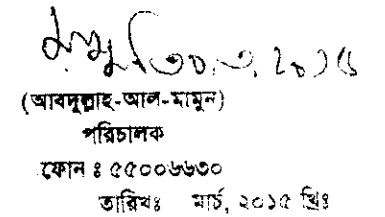 ৩০.৩.২০১৫
(আবদুল্লাহ-আল-মামুন)
পরিচালক
ফোন ঃ ৫৫০০৬৬৩০
তারিখঃ মার্চ, ২০১৫ খ্রিঃ